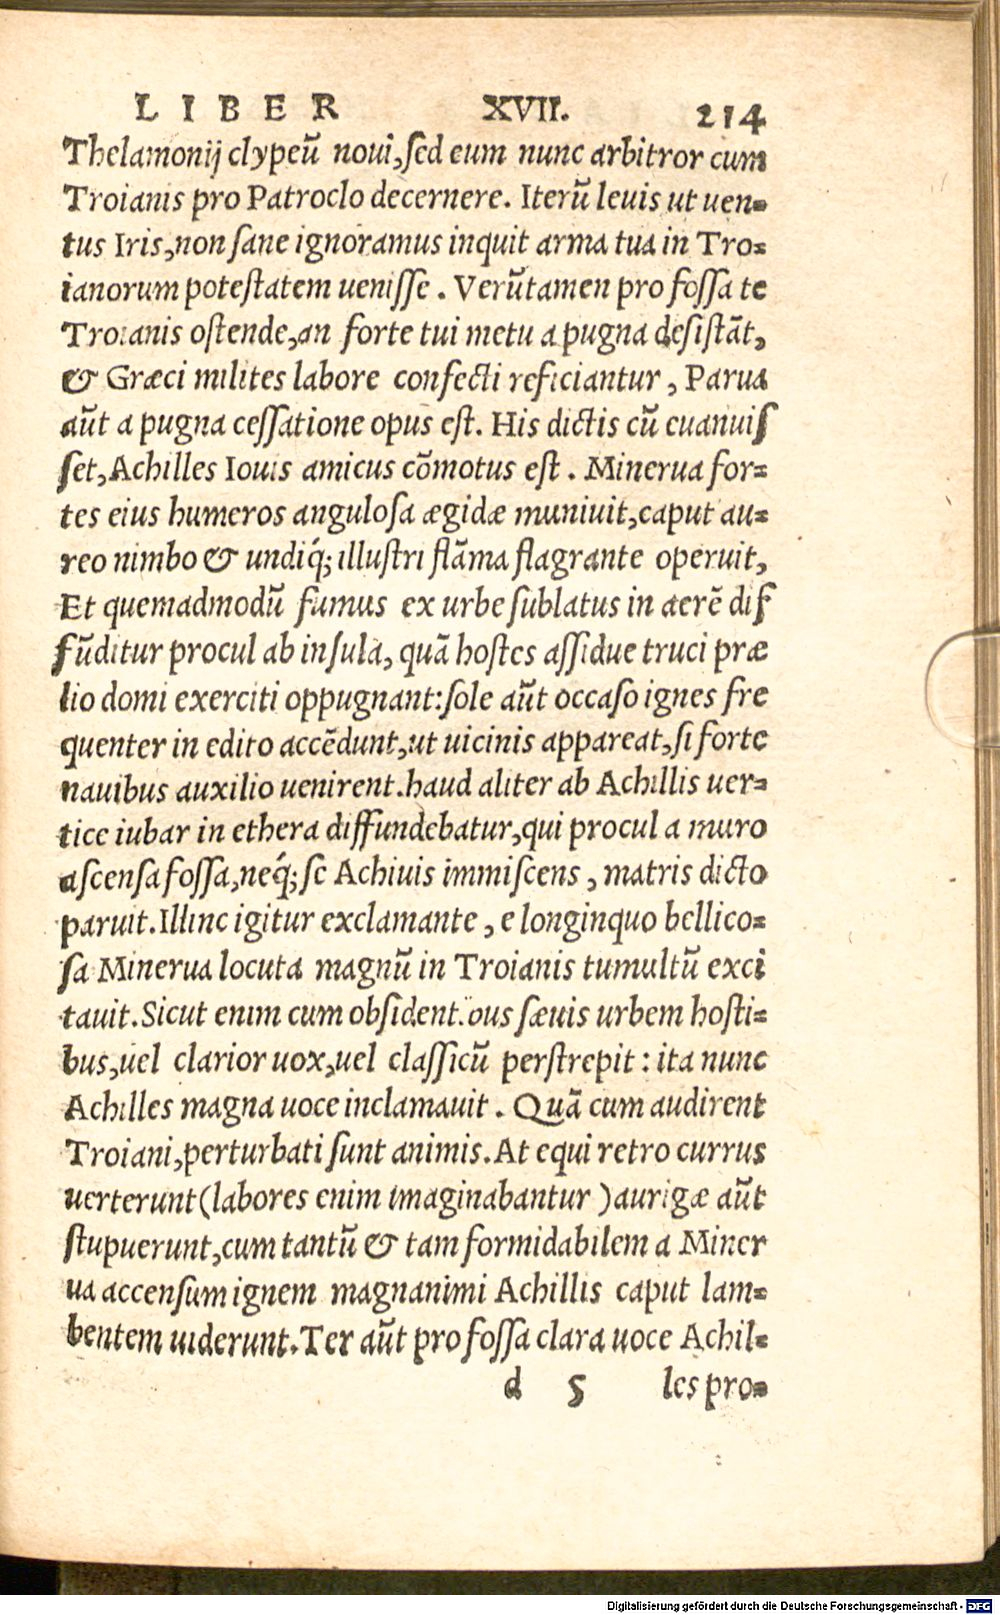 LIBER XVII. 214
Thelamonij clypeũ noui,ſed eum nunc arbitror cum
Troianis pro Patroclo decernere. Iterũ leuis ut uen-
tus Iris,non ſane ignoramus inquit arma tua in Tro-
ianorum poteſtatem ueniſſe. Verũtamen pro foſſa te
Troianis oſtende,an forte tui metu a pugna deſiſtãt,
& Græci milites labore confecti reficiantur, Parua
aũt a pugna ceſſatione opus eſt. His dictis cũ euanuiſ
ſet,Achilles Iouis amicus cõmotus eſt. Minerua for-
tes eius humeros anguloſa ægidæ muniuit,caput au-
reo nimbo & undiq́; illuſtri flãma flagrante operuit,
Et quemadmodũ fumus ex urbe ſublatus in aerẽ dif
fũditur procul ab inſula, quã hoſtes aſſidue truci præ
lio domi exerciti oppugnant: ſole aũt occaſo ignes fre
quenter in edito accẽdunt,ut uicinis appareat,ſi forte
nauibus auxilio uenirent.haud aliter ab Achillis uer-
tice iubar in ethera diffundebatur,qui procul a muro
aſcenſa foſſa,neq́; ſe Achiuis immiſcens, matris dicto
paruit.Illinc igitur exclamante, e longinquo bellico-
ſa Minerua locuta magnũ in Troianis tumultũ exci
tauit.Sicut enim cum obſidentibus ſæuis urbem hoſti-
bus,uel clarior uox,uel claſſicũ perſtrepit: ita nunc
Achilles magna uoce inclamauit. Quã cum audirent
Troiani,perturbati ſunt animis.At equi retro currus
uerterunt(labores enim imaginabantur)aurigæ aũt
ſtupuerunt,cum tantũ & tam formidabilem a Miner
ua accenſum ignem magnanimi Achillis caput lam-
bentem uiderunt.Ter aũt pro foſſa clara uoce Achil-
d 5 les pro-
Digitalisierung gefördert durch die Deutsche Forschungsgemeinschaft - DFG